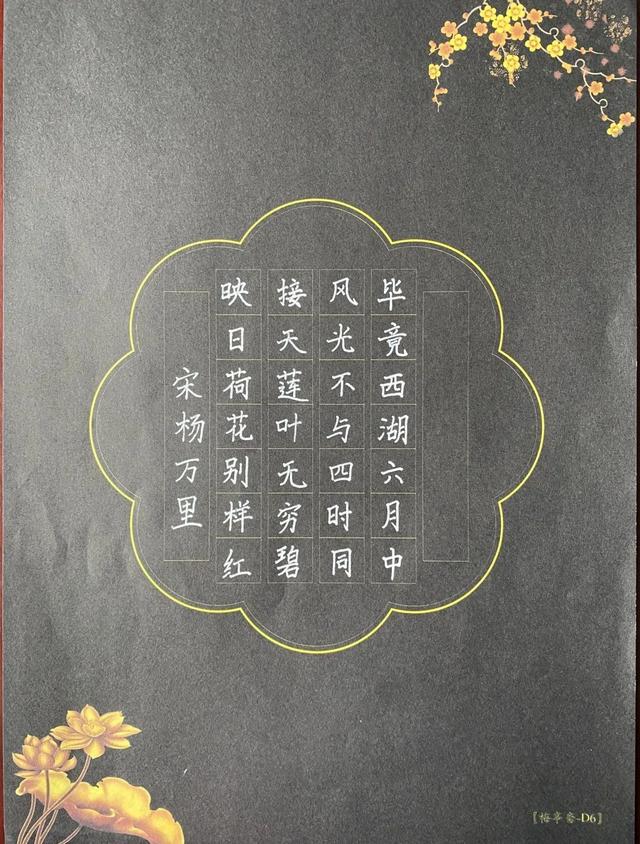 毕竟西湖六月中
风光不与四时同
接天莲叶无穷碧
映日荷花别样红
宋杨万里
〖梅亭斋-D6〗